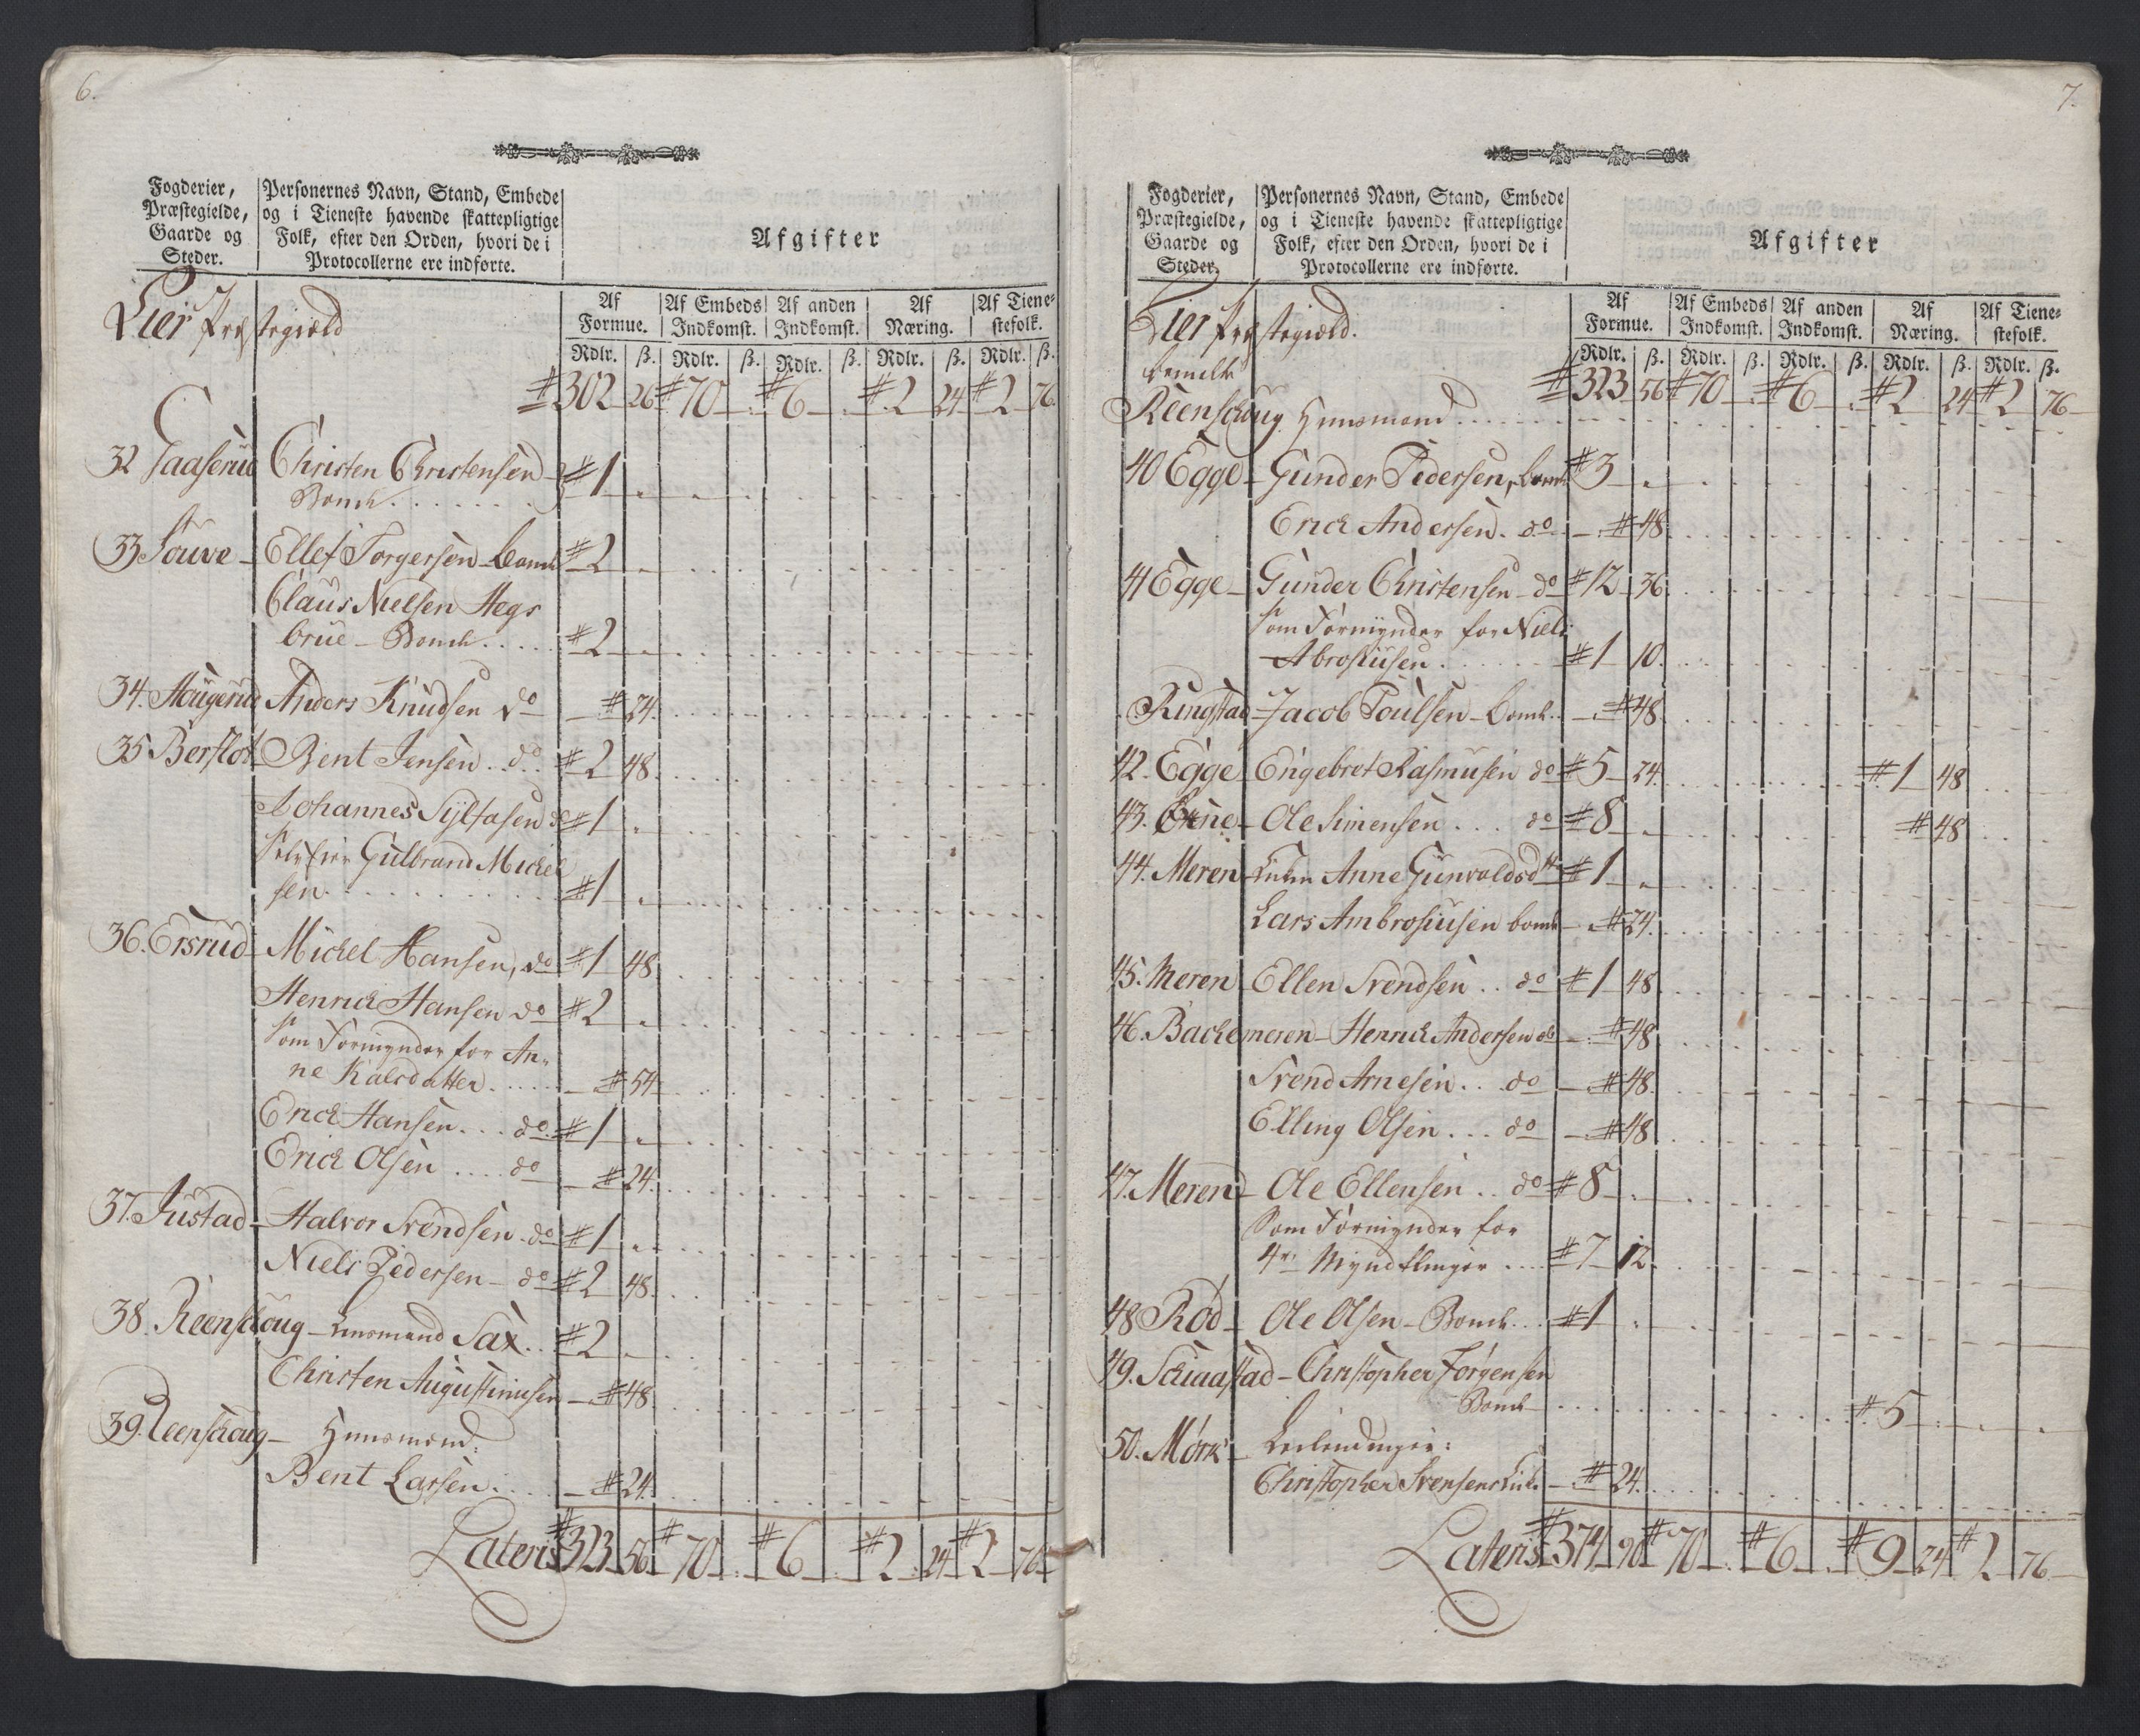 6.
Fogderier, Præstegielde, Gaarde og Steder.
Personernes Navn, Stand, Embede og i Tieneste havende skattepligtige Folk, efter den Orden, hvori de i Protocollerne ere indførte.
Afgifter
Af Formue. Af Embeds Indkomst. Af anden Indkomst. Af Næring. Af Tienestefolk.
Rdlr. ß. Rdlr. ß. Rdlr. ß. Rdlr. ß. Rdlr. ß.
Lier Præstegield
#302 26 #70 #6 #2 24 #2 76
32 Gaaserud Christen Christensen
Bonde #1
33 Souve - Ellef Torgersen - bonde #2
Claus Nielsen Hegs
brue - Bonde #2
34. Haugerud Anders Knudsen do #24.
35 Berflot Bent Jensen do #2 48
Johannes Syltasen do #1
Gulbrand Michel
sen #1
36. Ersrud - Michel Hansen, do #1 48
Henrich Hansen do #2
Som Formynder for An-
ne Kalsdatter #54
Erich Hansen do #1
Erich Olsen do #24.
37. Justad - Halvor Svendsen do #1
Niels Pedersen - do #2 48.
38. Reenschoug - Lensmand Sax #2
Christen Augustinusen - #48
39. Reenschoug - Huusmænd:
Bent Larsen #24.
Lateris #323 56 #70 #6 #2 24 #2 76
7.
Fogderier, Præstegielde, Gaarde og Steder.
Personernes Navn, Stand, Embede og i Tieneste havende skattepligtige Folk, efter den Orden, hvori de i Protocollerne ere indførte.
Afgifter
Af Formue. Af Embeds Indkomst. Af anden Indkomst. Af Næring. Af Tienestefolk.
Rdlr. ß. Rdlr. ß. Rdlr. ß. Rdlr. ß. Rdlr. ß.
Lier Præstegield.
bemelte
#323 56 #70 #6 #2 24 #2 76
Reenschoug Huusmænd
40 Egge - Gunder Pedersen, bonde #3
Erich Andersen. do #48
41 Egge - Gunder Christensen - do #12 36
Som Formynder for Niels
Abrosiusen #1 10.
Ringstad - Jacob Poulsen - bonde #48
42. Egge Engebret Rasmusen do #5 24. #1 48
43. Ole Simensen do #8 #48
44. Meren - Enken Anne Gunvaldsdtr #1
Lars Ambrosiusen bonde #24.
45. Meren Ellen Svendsen do #1 48
46. Bachemeren - Henrich Andersen do #48
Svend Arnesen do #48.
Elling Olsen do #48
47. Meren - Ole Ellensen do #8
Som Formynder for
4re Myndlinger #7 12.
48 Rød - Ole Olsen - Bonde #1
49. Schiaastad - Christopher Jørgensen
Bonde #5
50. Mørk - Leilendinger:
Christopher Svensens Enke #24.
Lateris #374 90 #70 #6 #9 24 #2 76